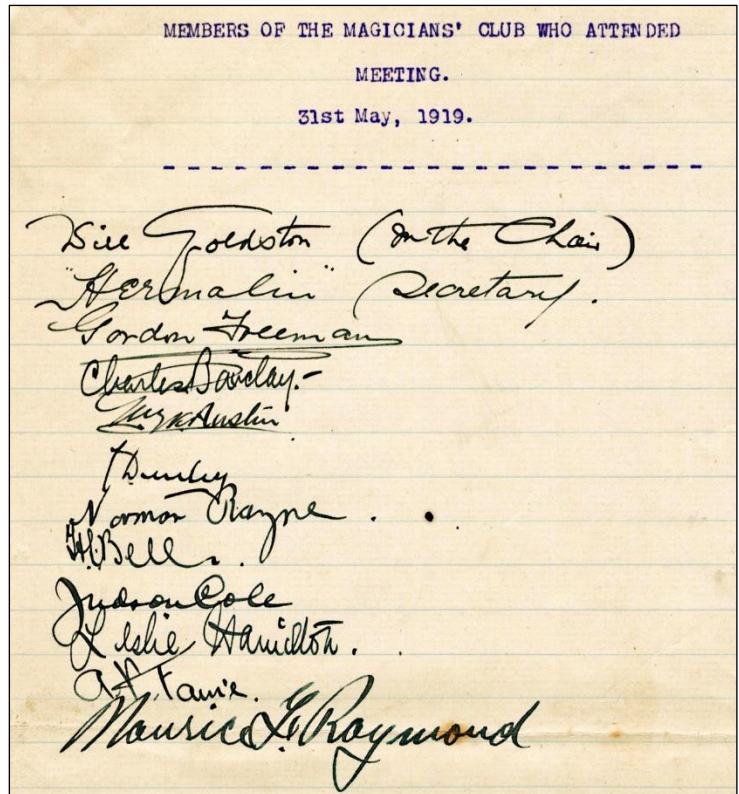 MEMBERS OF THE MAGICIANS' CLUB WHO ATTENDED
MEETING.
31st May, 1919.
- - - - - - - - - - - - - - - - - - - - - - - -
Will Goldston (In the Chair)
"Hermalin" Secretary.
Gordon Freeman
Charles Barclay.-
Austin
Norman Rayne.
H. Bell.
Judson Cole
Leslie Hamilton.
Maurice F. Raymond